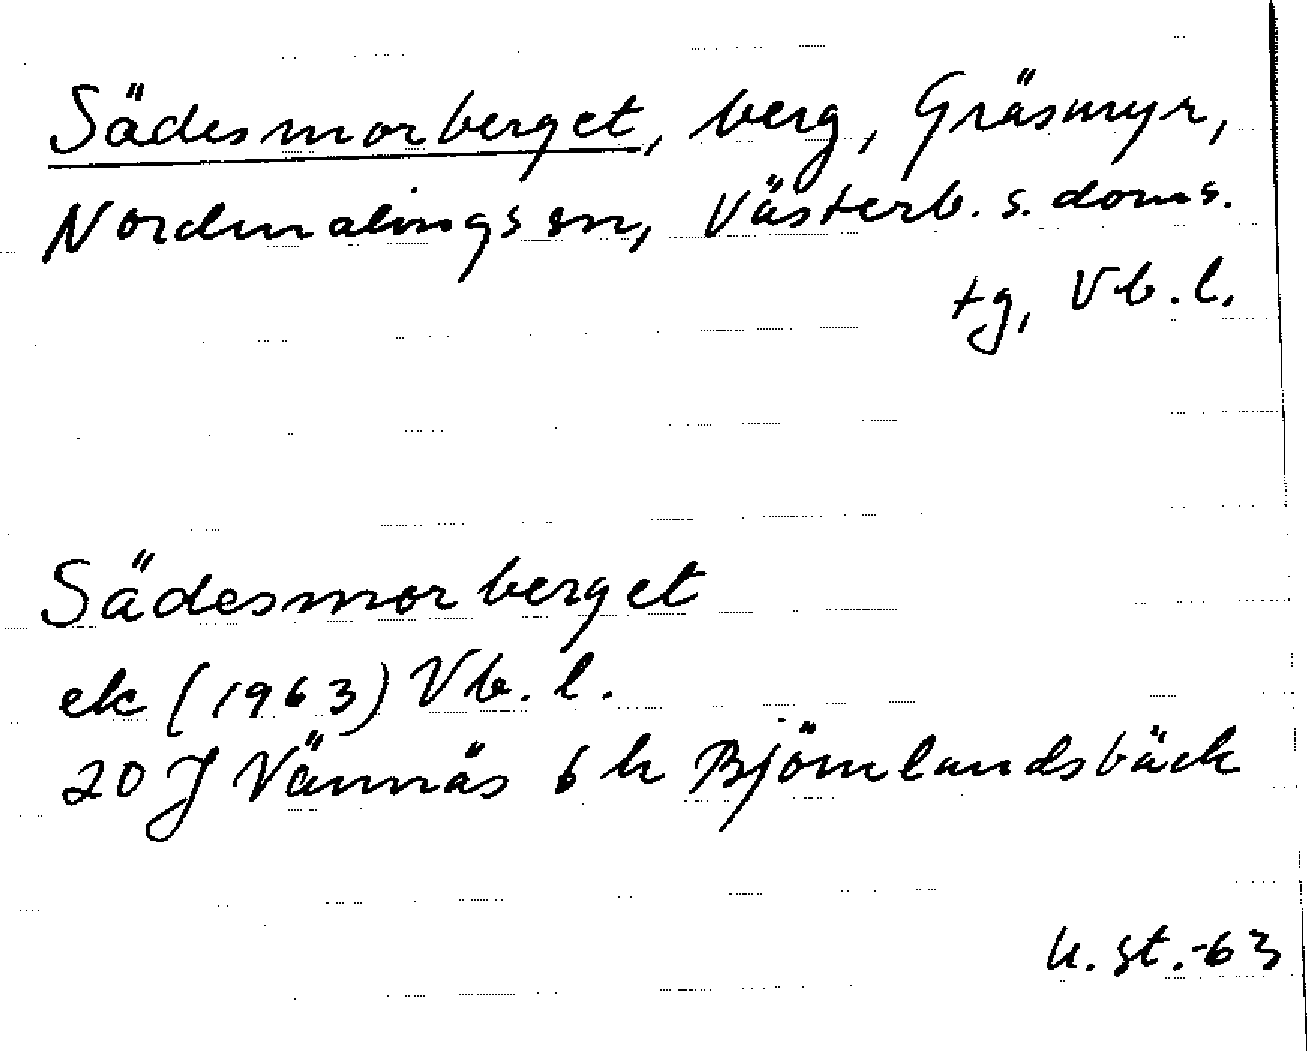 Sädesmorberget, berg, Gräsmyr,
Nordmalings sn, Västerb. s. doms.
tg, Vb. l.
Sädesmorberget
ek (1963) Vb. l.
20 J Vännäs 6 h Björnlandsbäck
U. St. -63